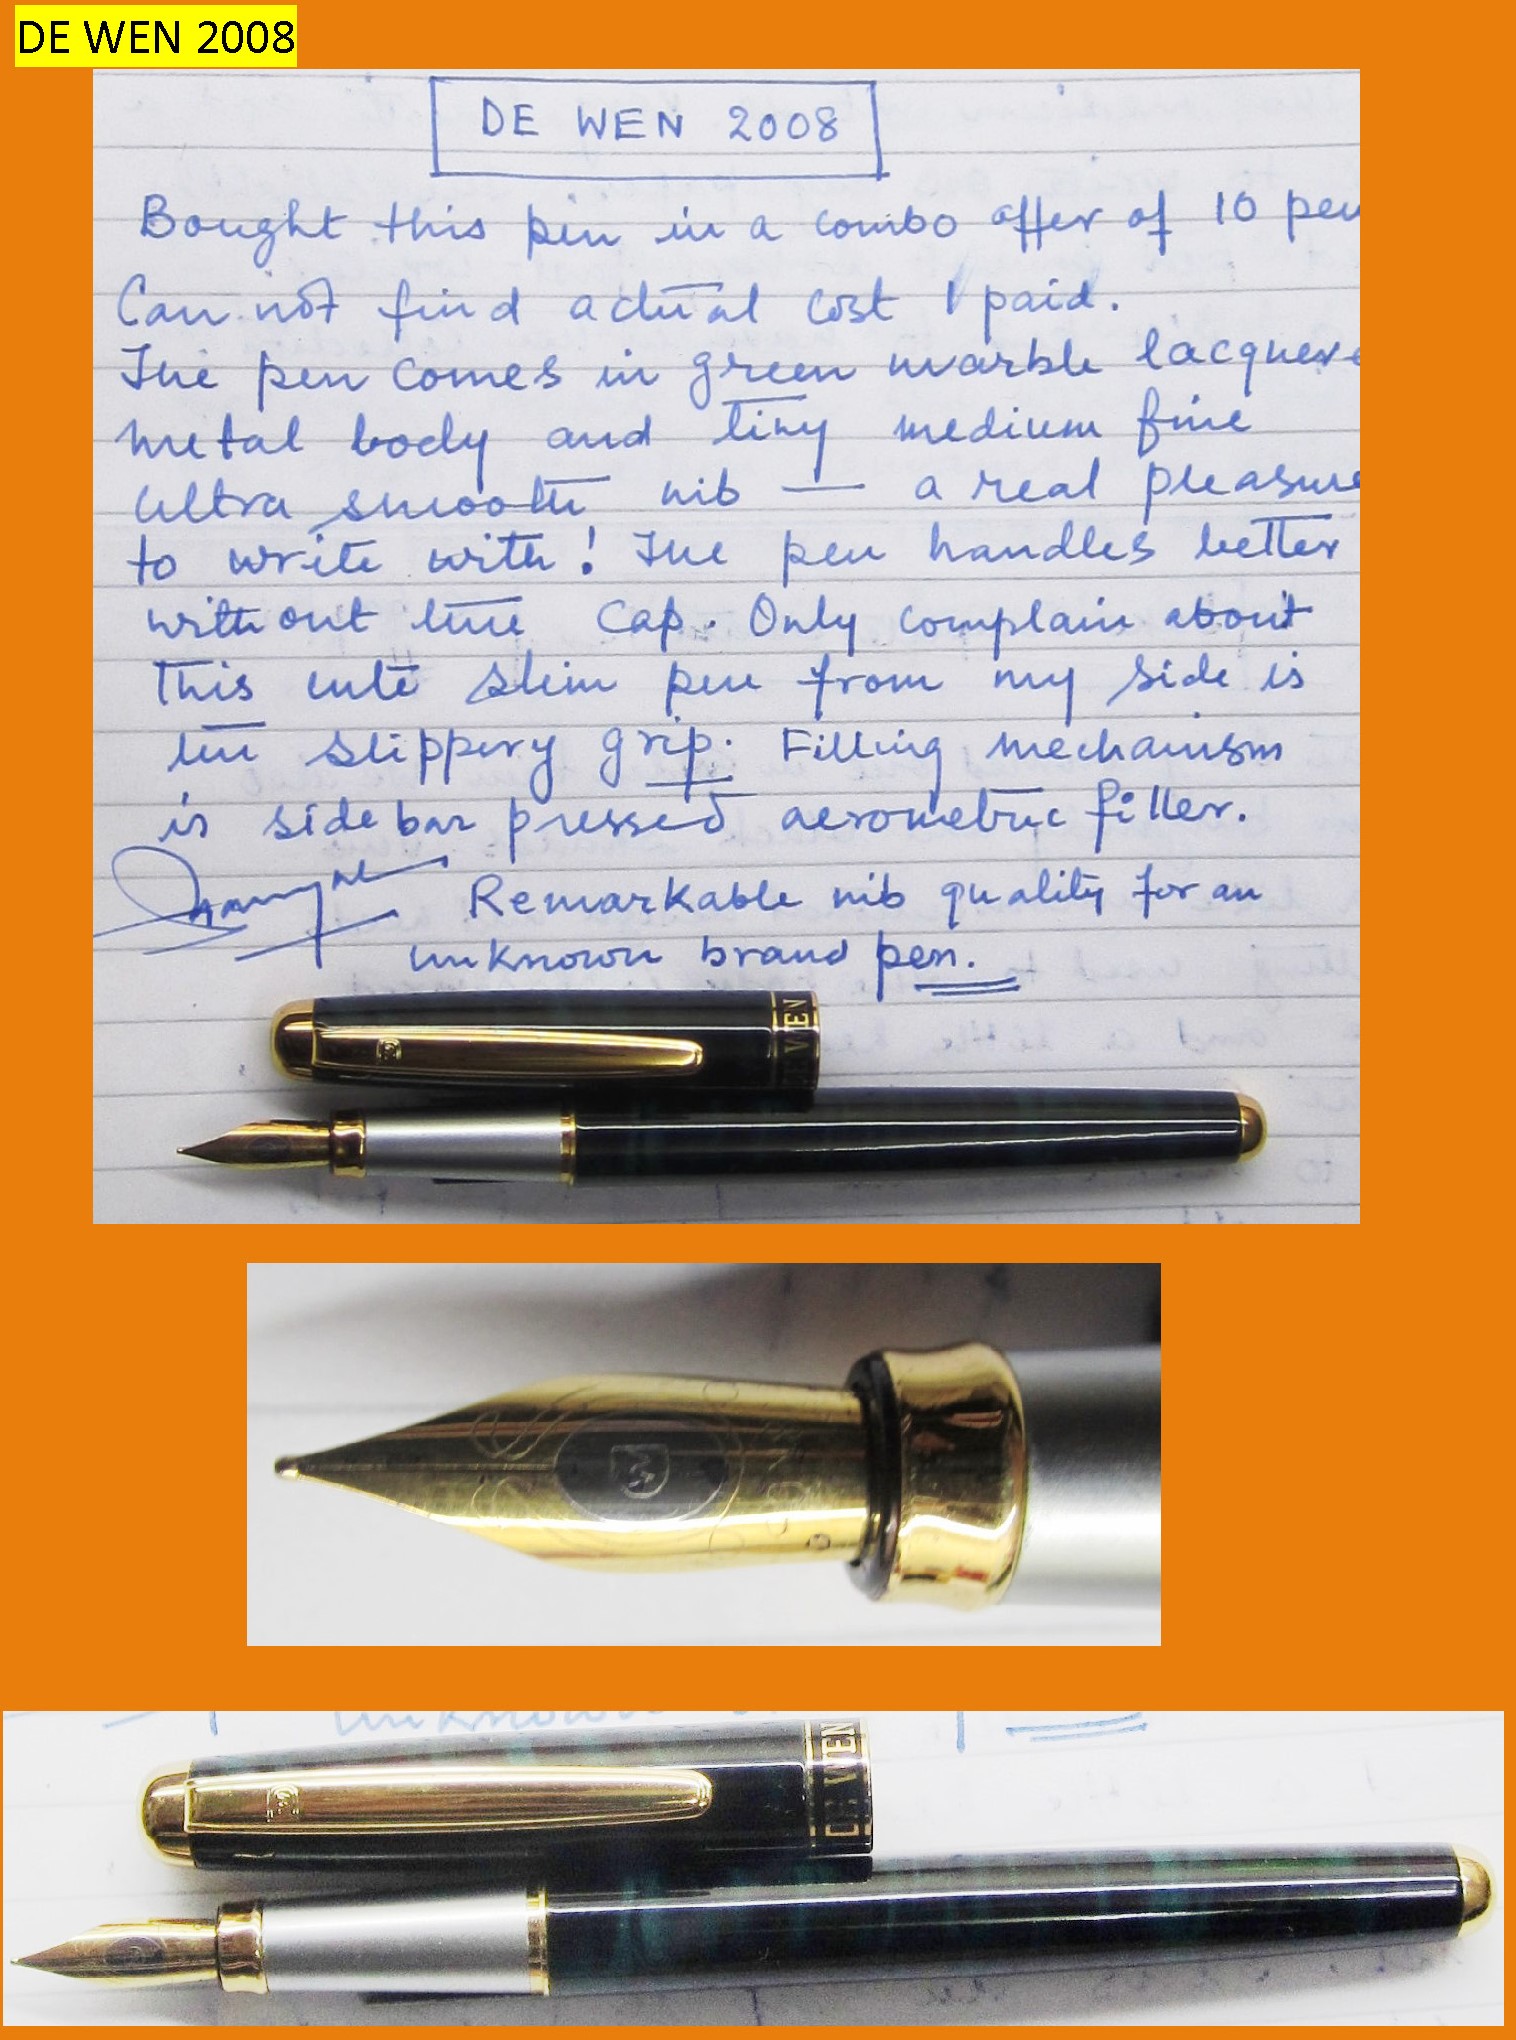 DE WEN 2008
DE WEN 2008
Bought this pen in a combo offer of 10 pen
Can not find actual cost I paid.
The pen comes in green marble lacquere
metal body and tiny medium fine
ultra smooth nib — a real pleasure
to write with! The pen handles better
without the cap. Only complain about
this cute slim pen from my side is
the slippery grip. Filling mechanism
is sidebar pressed aerometric filler.
Remarkable nib quality for an
unknown brand pen.
DE WEN
DE WEN
unknown